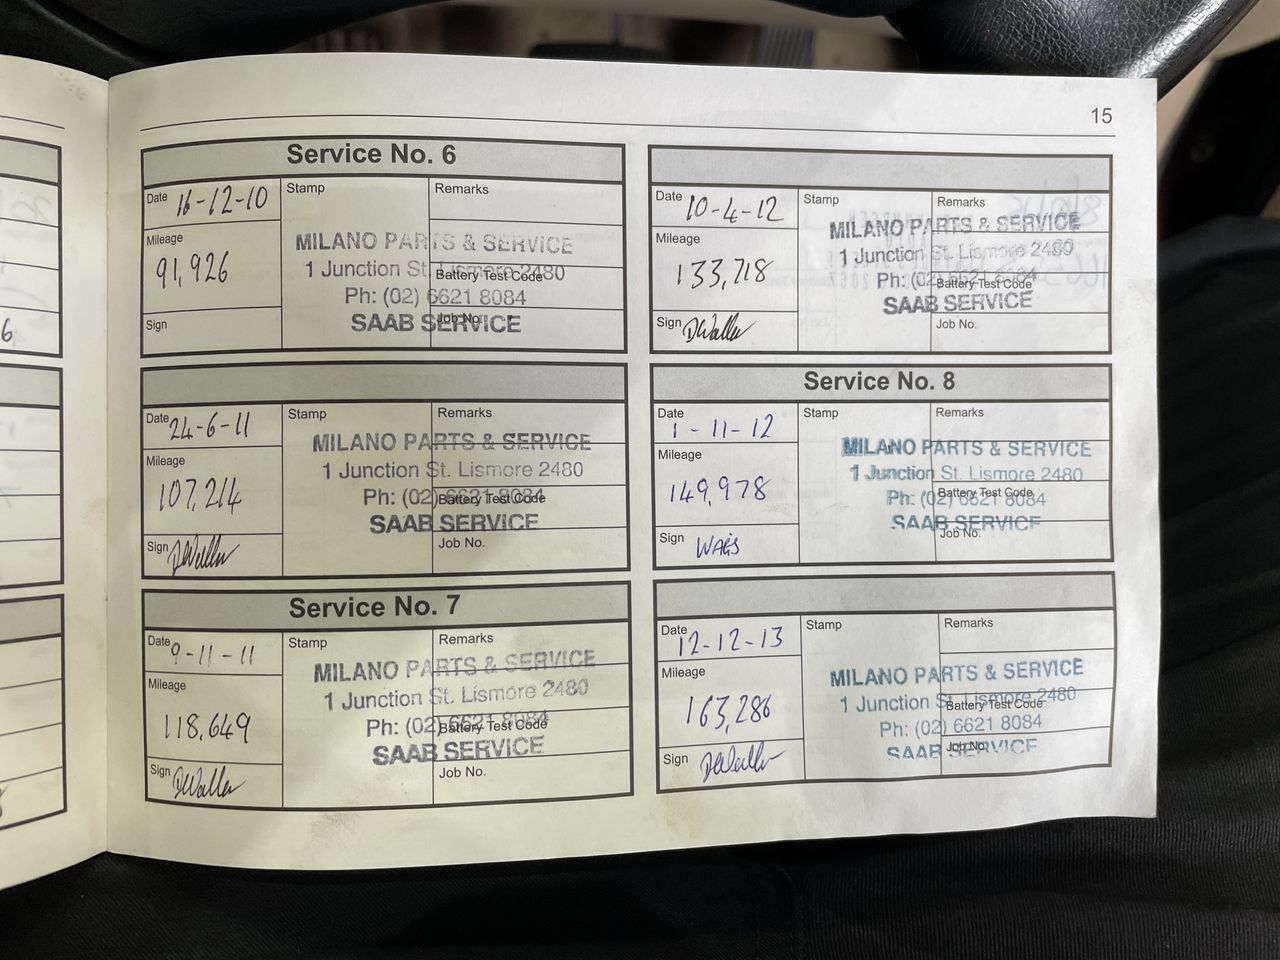 15
Service No. 6
Date 16-12-10
Mileage
91,926
Sign
Stamp
Remarks
MILANO PARTS & SERVICE
1 Junction St. Lismore 2480
Battery Test Code
Ph: (02) 6621 8084
SAAB SERVICE
Job No.
Date 24-6-11
Mileage
107,214
Sign DWaller
Stamp
Remarks
MILANO PARTS & SERVICE
1 Junction St. Lismore 2480
Ph: (02) 6621 8084
Battery Test Code
SAAB SERVICE
Job No.
Service No. 7
Date 9-11-11
Mileage
118,649
Sign DWaller
Stamp
Remarks
MILANO PARTS & SERVICE
1 Junction St. Lismore 2480
Ph: (02) 6621 8084
Battery Test Code
SAAB SERVICE
Job No.
Date 10-4-12
Mileage
133,718
Sign DWaller
Stamp
Remarks
MILANO PARTS & SERVICE
1 Junction St. Lismore 2480
Ph: (02) 6621 8084
Battery Test Code
SAAB SERVICE
Job No.
Service No. 8
Date
1-11-12
Mileage
149,978
Sign
Stamp
Remarks
MILANO PARTS & SERVICE
1 Junction St. Lismore 2480
Ph: (02) 6621 8084
Battery Test Code
SAAB SERVICE
Job No.
Date
12-12-13
Mileage
163,286
Sign DWaller
Stamp
Remarks
MILANO PARTS & SERVICE
1 Junction St. Lismore 2480
Battery Test Code
Ph: (02) 6621 8084
SAAB SERVICE
Job No.